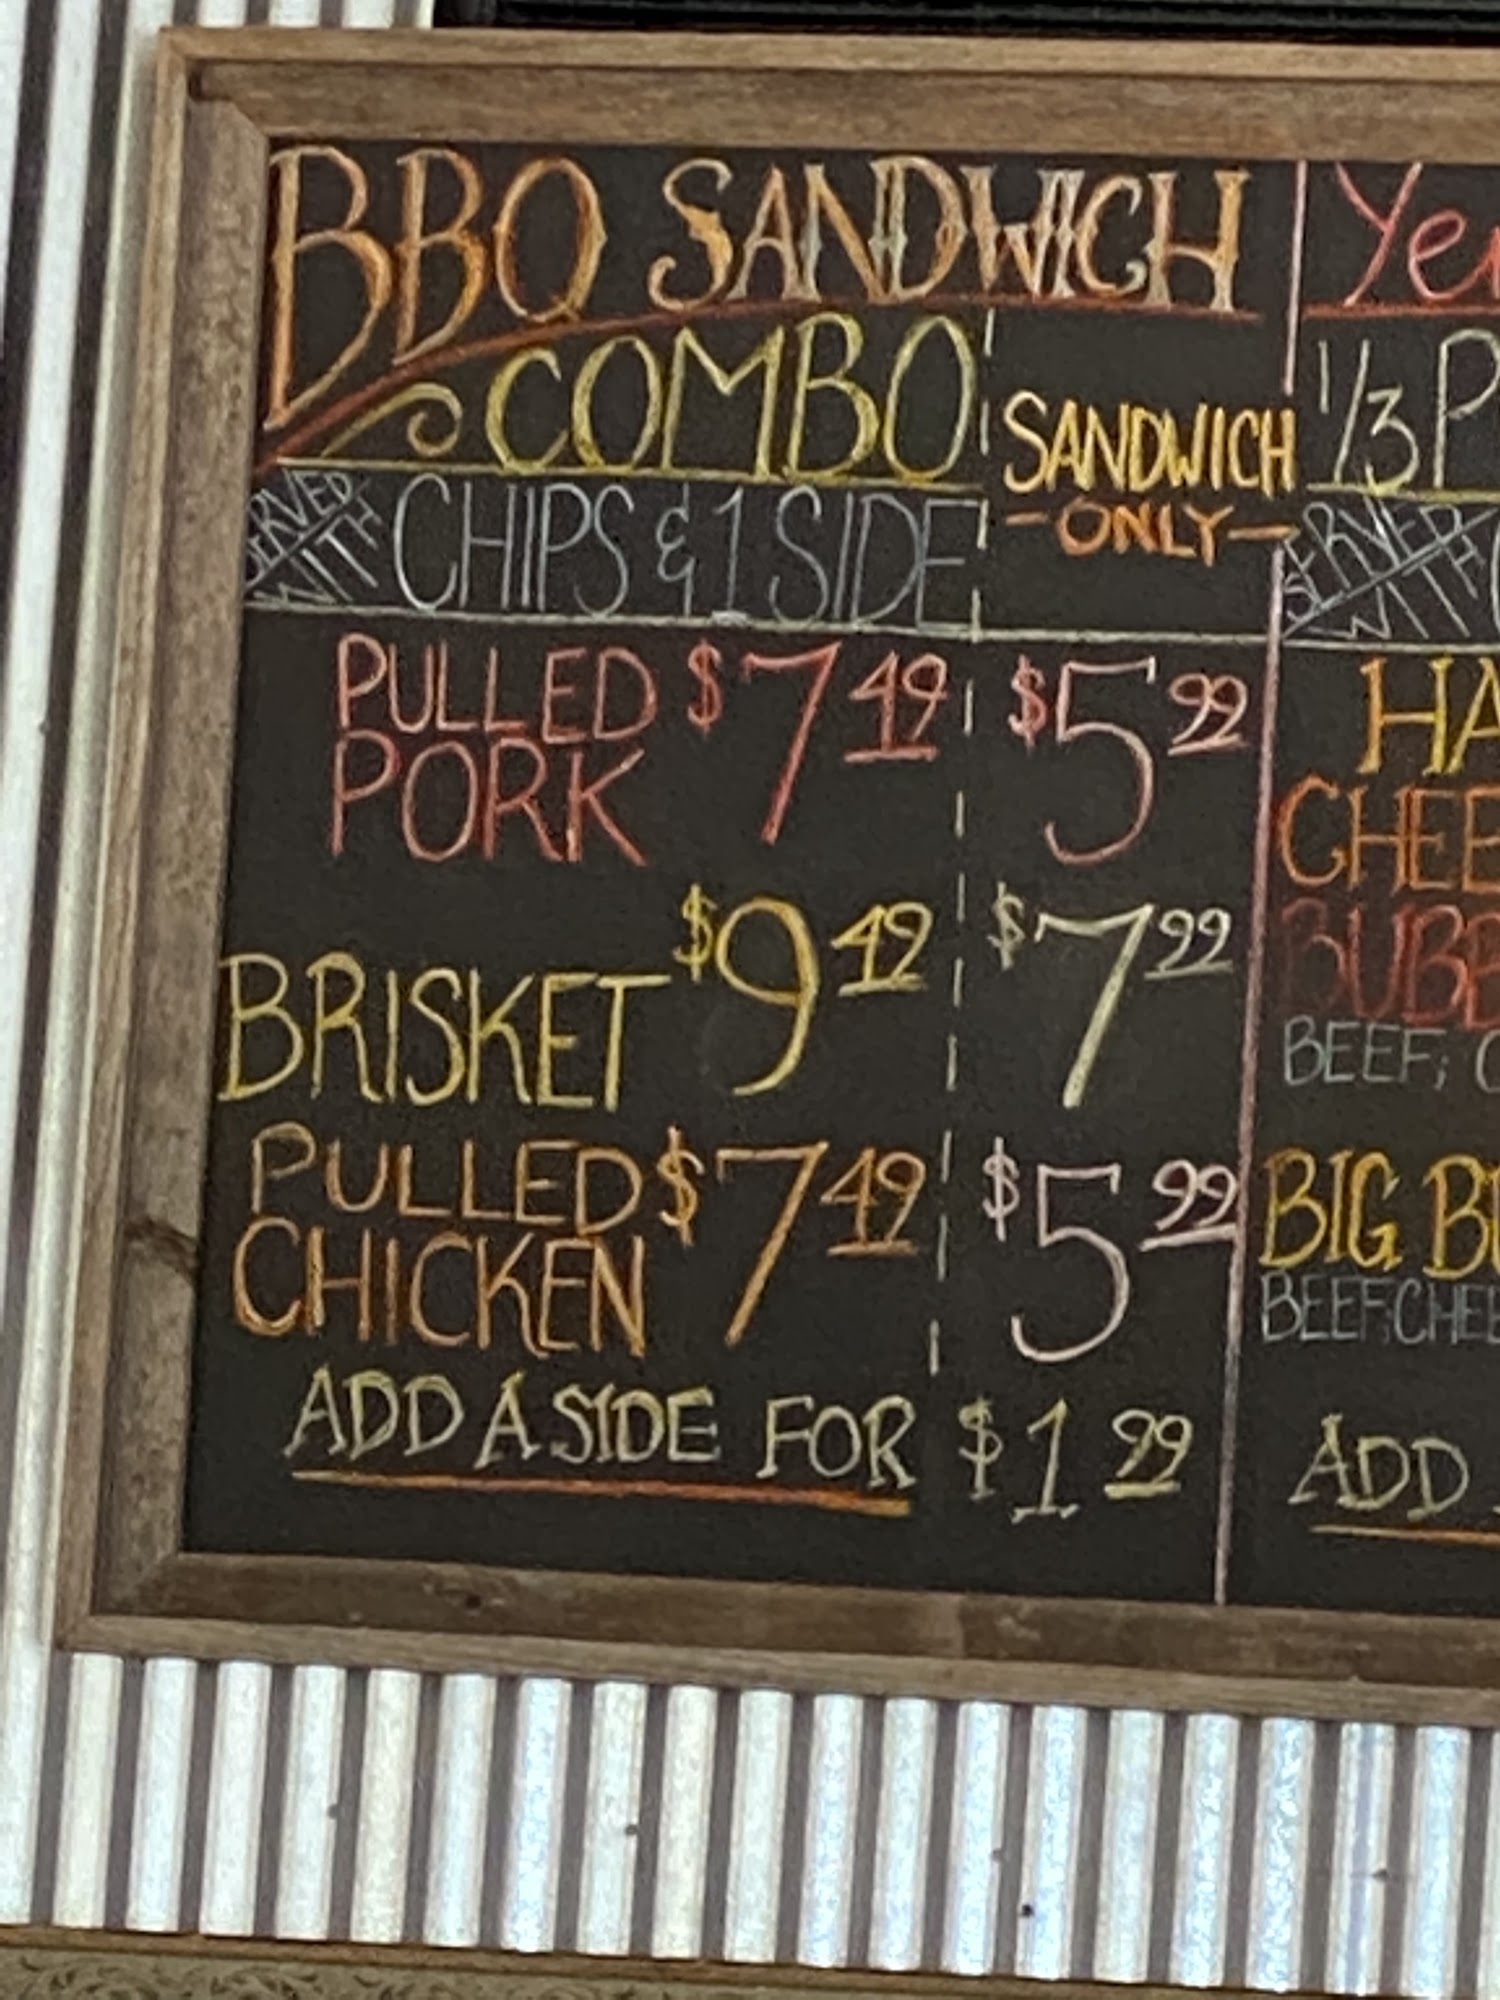 BBQ SANDWICH
COMBO
SANDWICH
-ONLY-
SERVED WITH CHIPS & 1 SIDE
PULLED PORK $7.49 $5.99
BRISKET $9.49 $7.99
PULLED CHICKEN $7.49 $5.99
ADD A SIDE FOR $1.99
1/3 P
SERVED WITH
HA
CHEE
BUBB
BEEF; C
BIG BU
BEEF; CHEE
ADD